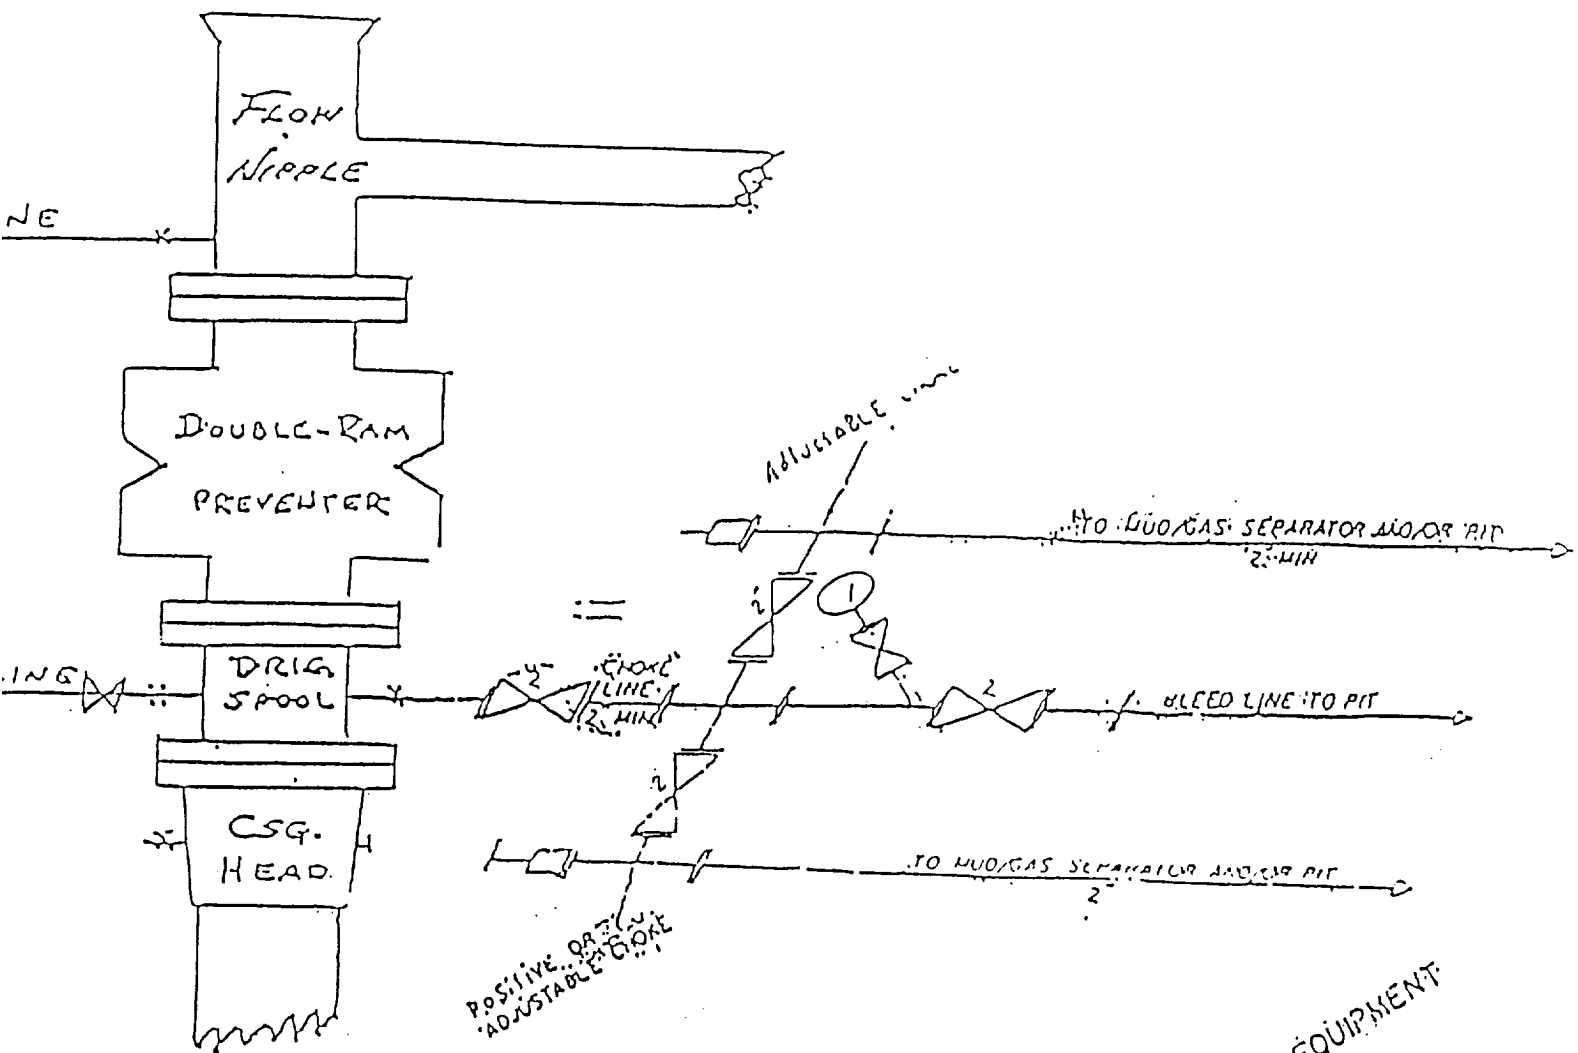 FLOW
NIPPLE
NE
DOUBLE-RAM
PREVENTER
ADJUSTABLE
TO MUD/GAS SEPARATOR AND/OR PIT
2" MIN
2"
1
ING
DRLG
SPOOL
2"
CHOKE
LINE
2" MIN
2
BLEED LINE TO PIT
2
CSG.
HEAD
TO MUD/GAS SEPARATOR AND/OR PIT
2"
POSITIVE OR
ADJUSTABLE CHOKE
EQUIPMENT